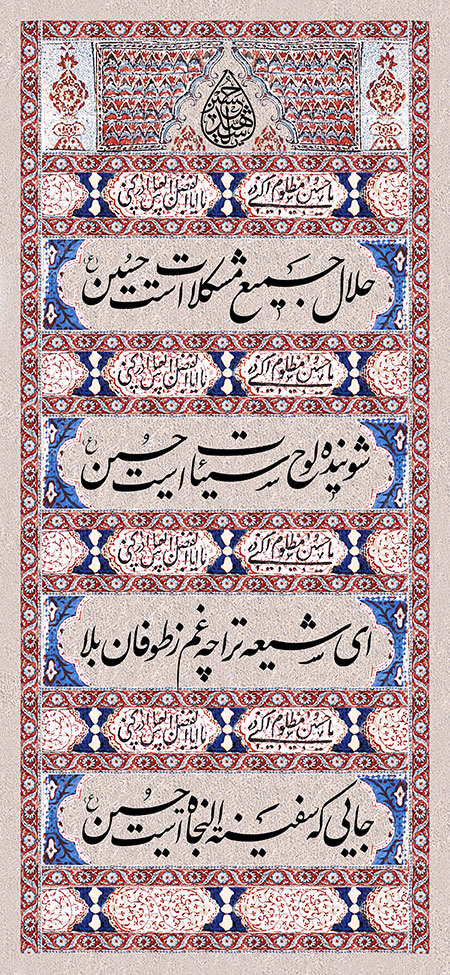 یا حسین مظلوم ادرکنی یا اباالفضل العباس ادرکنی
حلال جمیع مشکلات است حسین (ع)
یا حسین مظلوم ادرکنی یا اباالفضل العباس ادرکنی
شوینده لوح سیئات است حسین (ع)
یا حسین مظلوم ادرکنی یا اباالفضل العباس ادرکنی
ای شیعه ترا چه غم ز طوفان بلا
یا حسین مظلوم ادرکنی یا اباالفضل العباس ادرکنی
جایی که سفینة النجاه است حسین (ع)